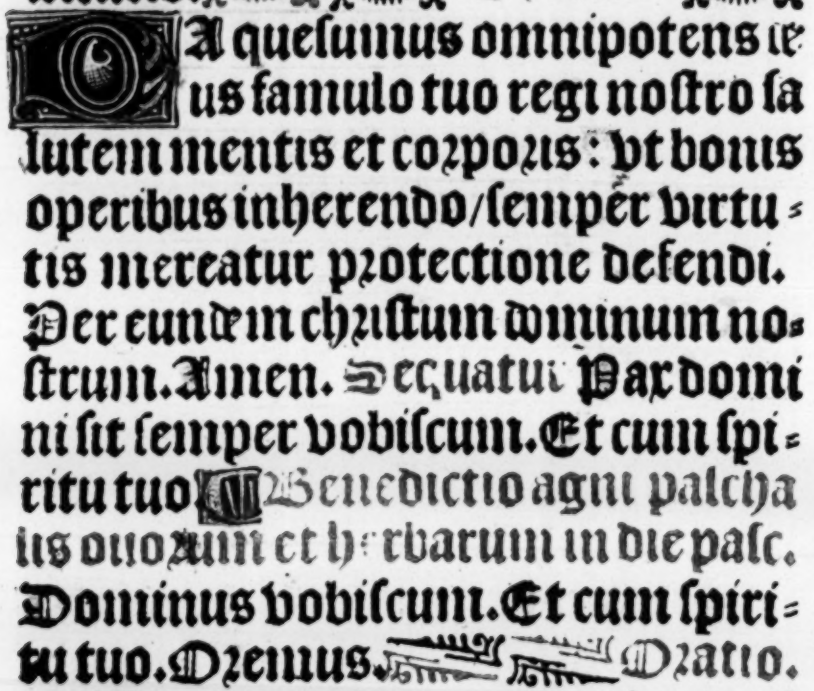 DA queſumus omnipotens de
us famulo tuo regi noſtro ſa
lutem mentis et corporis: vt bonis
operibus inherendo/ſemper virtu-
tis mereatur protectione defendi.
Per eundem chriſtum dominum no-
ſtrum. Amen. Sequatur Pax domi
ni ſit ſemper vobiſcum. Et cum ſpi-
ritu tuo Benedictio agni paſcha
lis ouorum et herbarum in die paſc.
Dominus vobiſcum. Et cum ſpiri-
tu tuo. Oremus. Oratio.